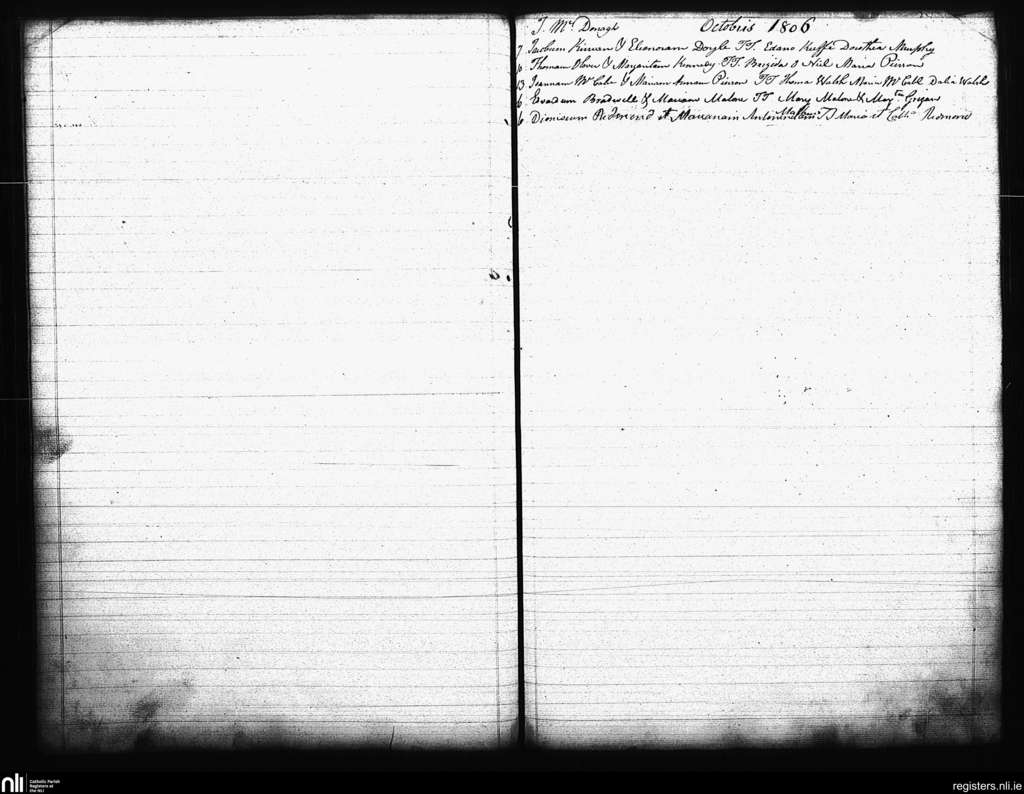 T. Mc Donogh Octobris 1806
7 Jacobum Kirwan & Elionoram Doyle TT Edano Keeffe Dorothea Murphy
Thomam Oliver & Margaritam Kennedy TT. Brigida O Niel Maria Pierson
13 Joannam Mc Cabe & Mariam Annam Pierson TT Thoma Walsh Maria Mc Cabe Dalia Walsh
6 Evadum Bradwell & Mariam Malone TT Mary Malone & Margta
6 Dionisium Redmond et Mariannam TT Maria et Redmond
nli
Catholic Parish
Registers at
the NLI
registers.nli.ie